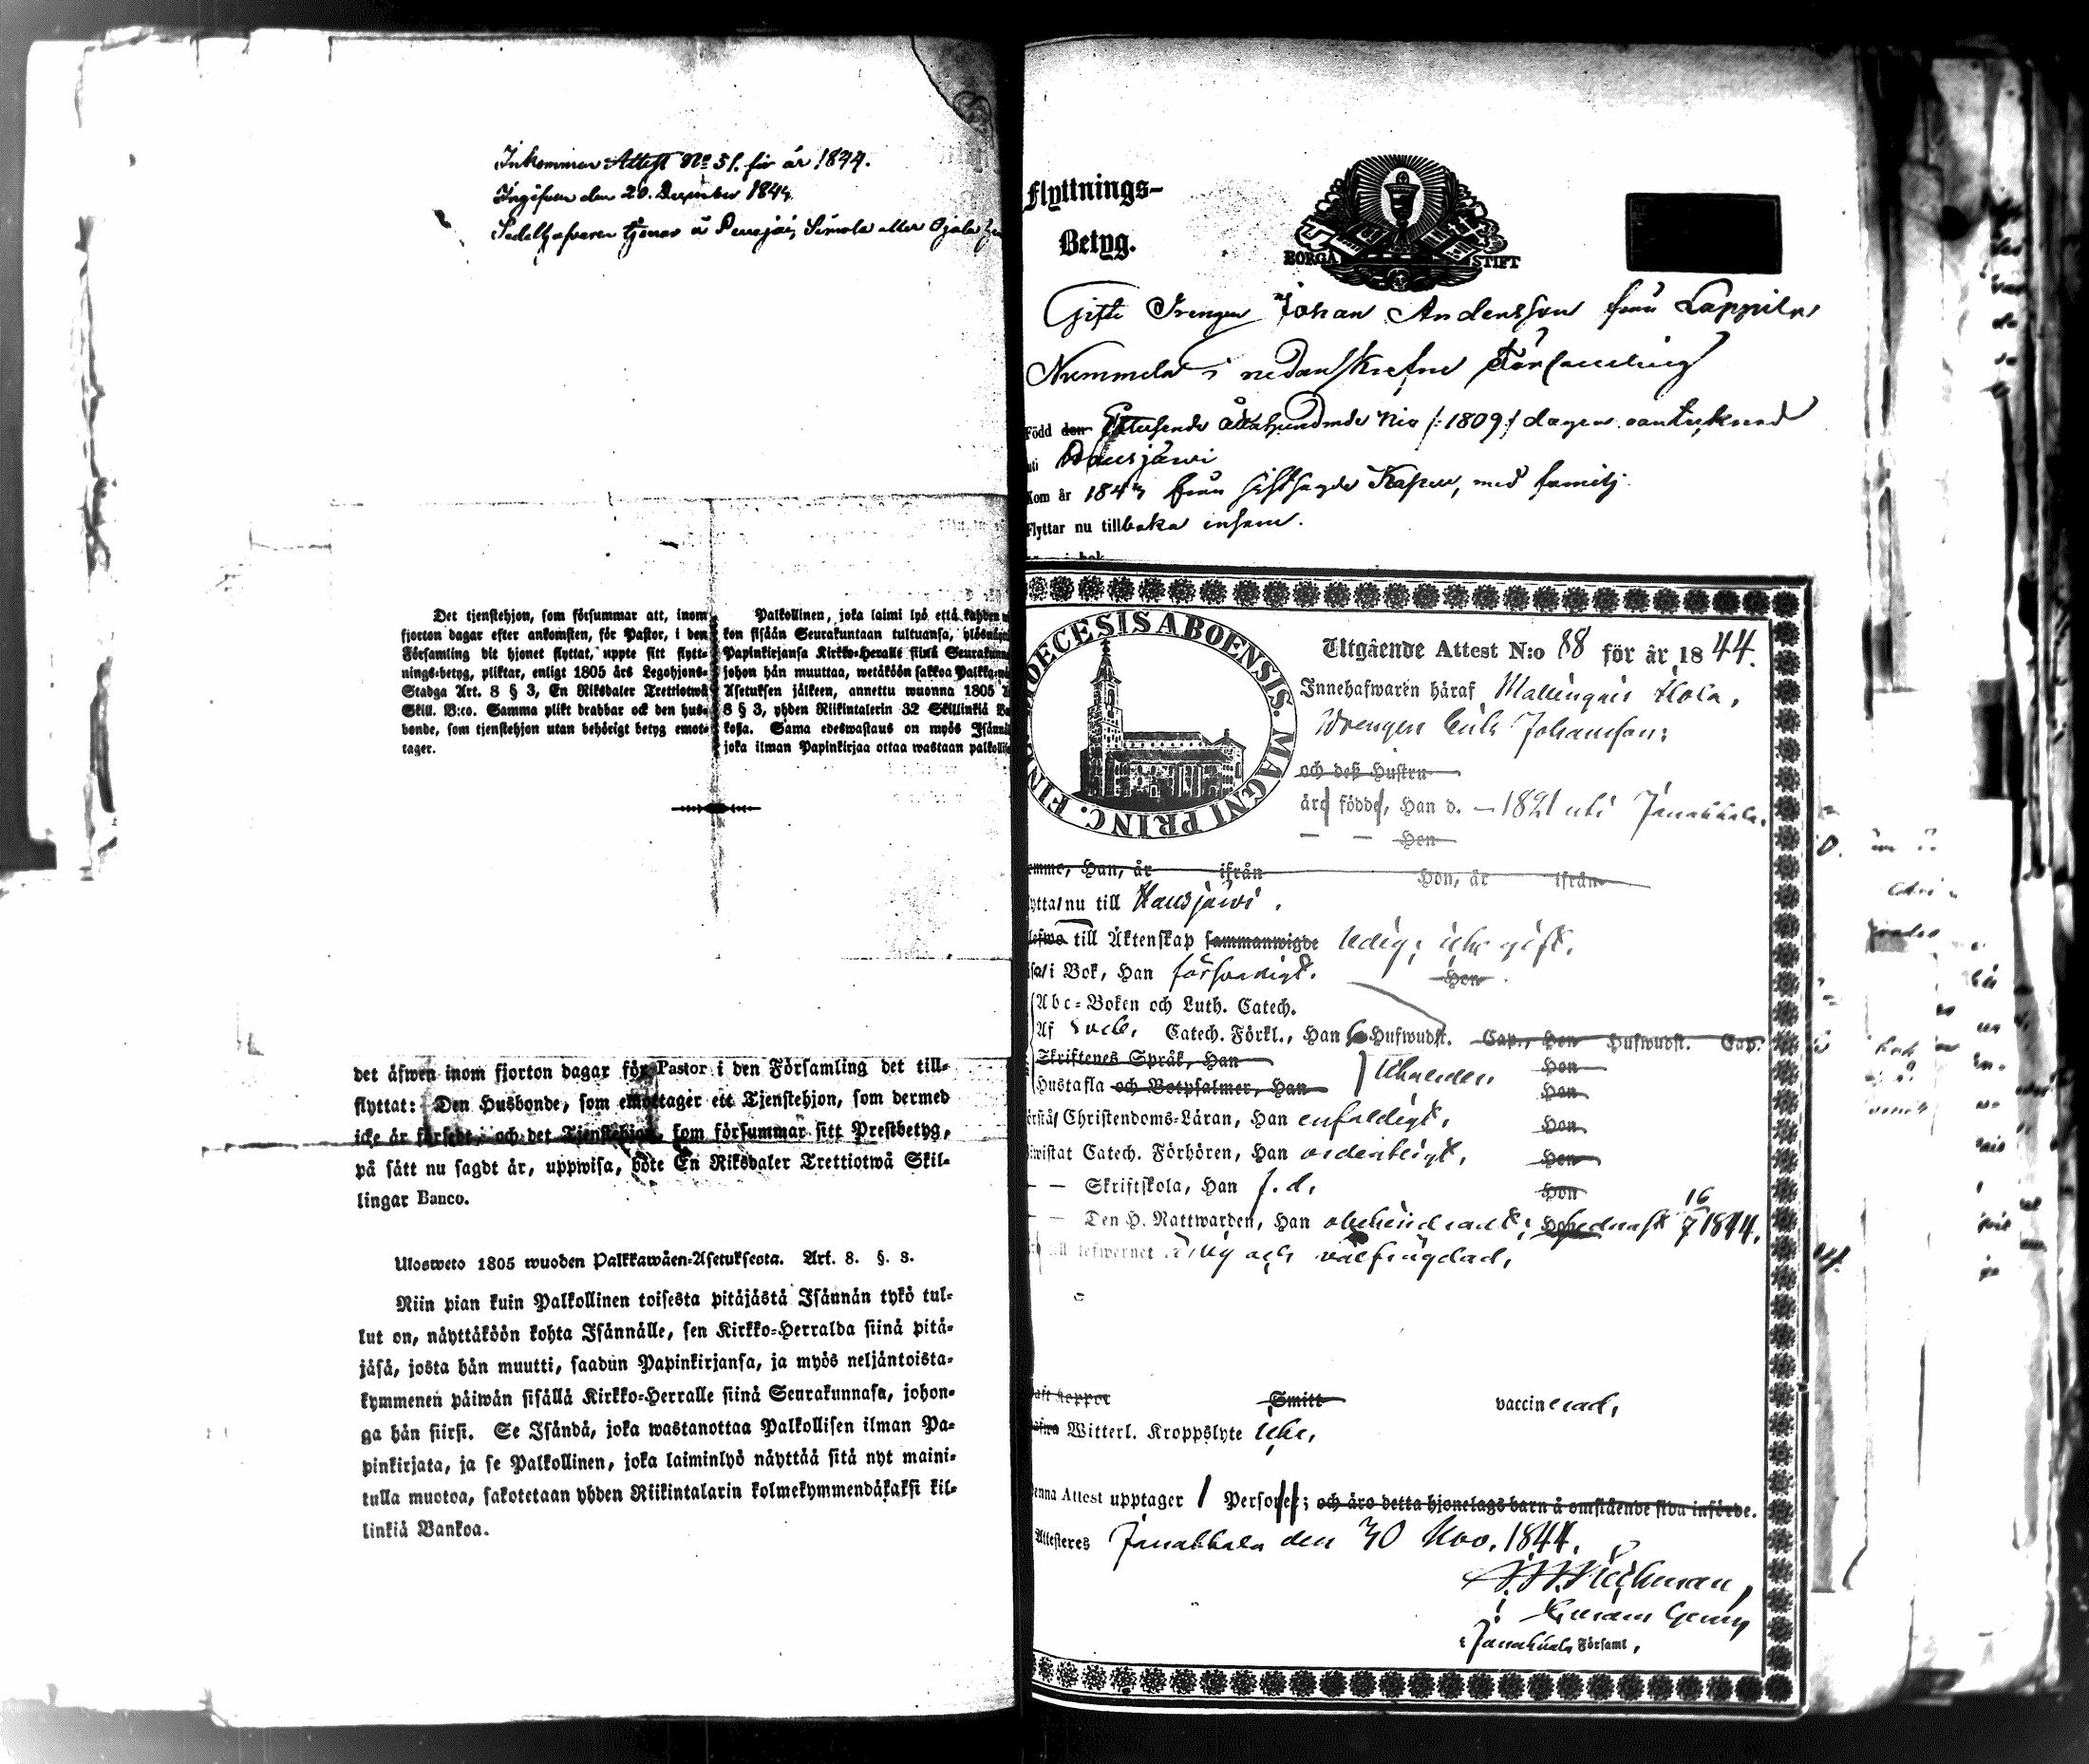 Inkommen Attest No 51. för år 1844.
Ingifven den 20. December 1844.
Sedelhafvaren tjenar å
Det tjenstehjon, som försummar att, inom
fjorton dagar efter ankomsten, för Pastor, i den
Församling dit hjonet flyttat, uppte sitt flytt-
nings-betyg, pliktar, enligt 1805 års Legohjons-
Stadga Art. 8 § 3, En Riksdaler Trettiotwå
Skill. B:co. Samma plikt drabbar ock den hus-
bonde, som tjenstehjon utan behörigt betyg emot-
tager.
Palkollinen, joka laimi lyö että kahden
kon sisään Seurakuntaan tultuansa, ylösnäyttää
Papinkirjansa Kirkko-Herralle siinä Seurakunnasa
johon hän muuttaa, wetäköön sakkoa Palkka-
Asetuksen jälkeen, annettu wuonna 1805
8 § 3, yhden Riikintalerin 32 Skillinkiä
koßa. Sama edeswastaus on myös Isännällä
joka ilman Papinkirjaa ottaa wastaan palkollisen
det äfwen inom fjorton dagar för Pastor i den Församling det till-
flyttat: Den Husbonde, som emottager ett Tjenstehjon, som dermed
icke är försedt, och det Tjenstehjon, som försummar sitt Prestbetyg,
på sätt nu sagdt är, uppwisa, böte En Riksdaler Trettiotwå Skil-
lingar Banco.
Ulosweto 1805 wuoden Palkkawäen-Asetuksesta. Art. 8. §. 3.
Niin pian kuin Palkollinen toisesta pitäjästä Isännän tykö tul-
lut on, näyttäköön kohta Isännälle, sen Kirkko-Herralda siinä pitä-
jäsä, josta hän muutti, saadun Papinkirjansa, ja myös neljäntoista-
kymmenen päiwän sisällä Kirkko-Herralle siinä Seurakunnasa, johon-
ga hän siirsi. Se Isändä, joka wastanottaa Palkollisen ilman Pa-
pinkirjata, ja se Palkollinen, joka laiminlyö näyttää sitä nyt maini-
tulla muotoa, sakotetaan yhden Riikintalarin kolmekymmendäkaksi kil-
linkiä Bankoa.
Flyttnings-
Betyg.
BORGÅ STIFT
Gifte Drengen Johan Andersson från Lappila
Nummela i nedanskrefne Församling
Född den Ettusende åttahundrade nio /:1809:/ dagen oantecknad
uti Hausjärvi
Kom år 1843 från sistsagde Kapell, med familj.
Flyttar nu tillbaka ensam.
DIOECESIS ABOENSIS. MAGNI PRINC. FINL
Utgående Attest N:o 88 för år 1844.
Innehafwaren häraf Mallinginis Kola,
Drengen Erik Johansson;
och deß Hustru
äro födde, Han d. — 1821 uti Janakkala.
— — Hon
komme, Han, år ifrån Hon, år ifrån
flytta nu till Hausjärvi.
till Äktenskap sammanwigde ledig, icke gift.
läsa i Bok, Han försvarligt. Hon
Abc-Boken och Luth. Catech.
Af Catech. Förkl., Han 6 Hufwudst. Cap., Hon Hufwudst. Cap.
Skriftenes Språk, Han Hon
Hustafla och Botpsalmer, Han utvanden Hon
förstå Christendoms-Läran, Han enfaldigt, Hon
biwistat Catech. Förhören, Han ordentligt, Hon
— — Skriftskola, Han s. d. Hon
— — Den H. Nattwarden, Han obehindradt; Hon sednast 16/7 1844.
till lefwernet ärlig och välfrägdad,
haft koppor Smitt vaccinerad,
Witterl. Kroppslyte icke,
Denna Attest upptager 1 Personer; och äro detta hjonelags barn å omstående sida införde.
Attesteres Janakkala den 30 Nov. 1844.
i Janakkala Församl,